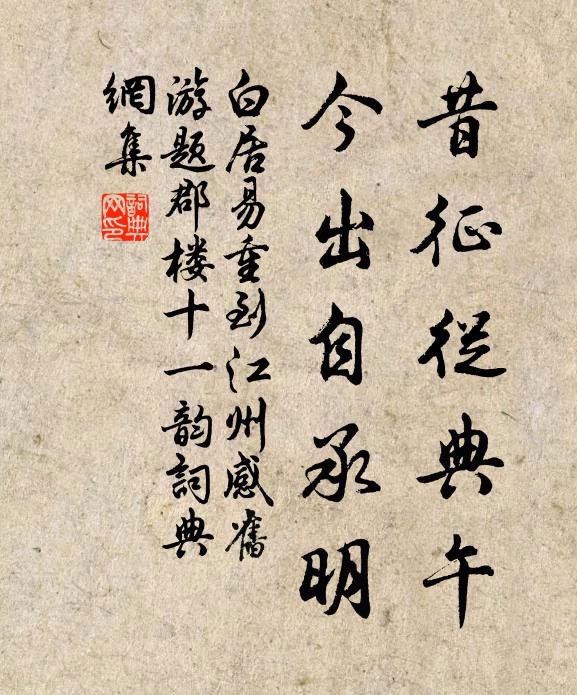 昔征從典午
今出自承明
白居易重到江州感舊
游題郡楼十一韵詞典
網集
詞典
网印